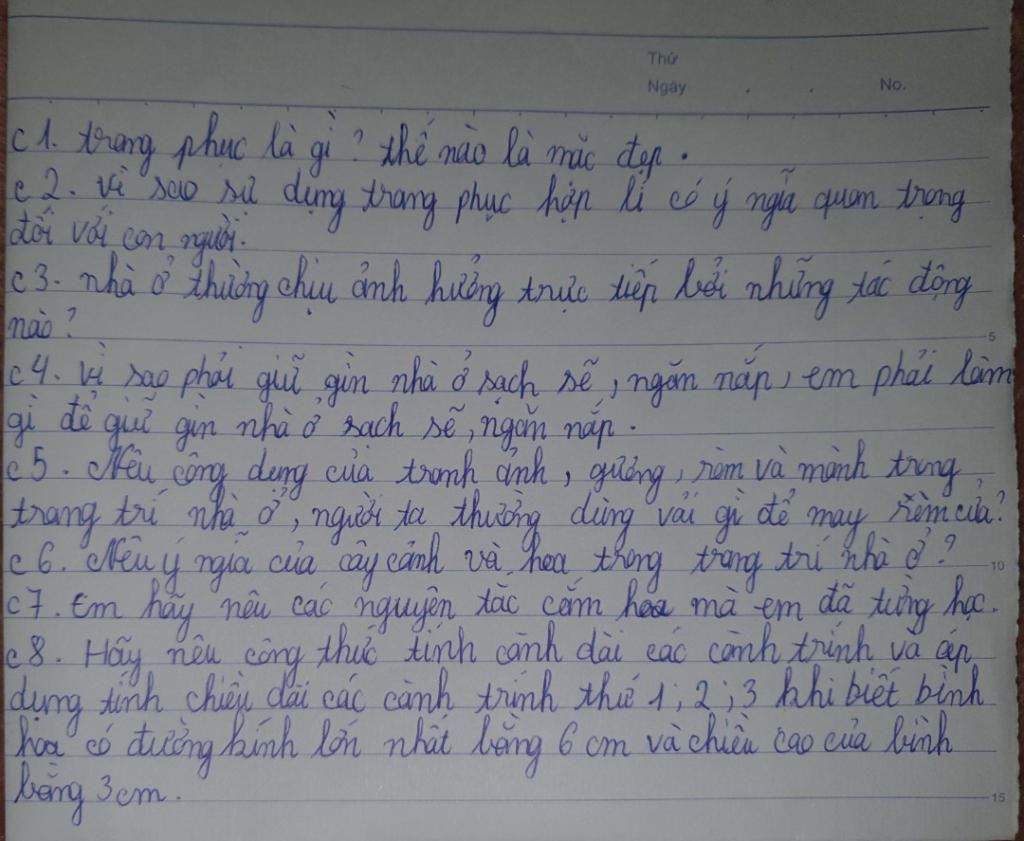 Thứ
Ngày No.
c1. trang phục là gì? thế nào là mặc đẹp.
c2. vì sao sử dụng trang phục hợp lí có ý ngĩa quan trọng
đối với con người.
c3. nhà ở thường chịu ảnh hưởng trực tiếp bởi những tác động
nào?
5
c4. vì sao phải giữ gìn nhà ở sạch sẽ, ngăn nắp, em phải làm
gì để giữ gìn nhà ở sạch sẽ, ngăn nắp.
c5. Nêu công dụng của tranh ảnh, gương, rèm và mành trong
trang trí nhà ở, người ta thường dùng vải gì để may rèm cửa?
c6. Nêu ý ngĩa của cây cảnh và hoa trong trang trí nhà ở?
10
c7. Em hãy nêu các nguyên tắc cắm hoa mà em đã từng học.
c8. Hãy nêu công thức tính cành dài các cành trính và áp
dụng tính chiều dài các cành trính thứ 1; 2; 3 khi biết bình
hoa có đường kính lớn nhất bằng 6 cm và chiều cao của bình
bằng 3cm.
15